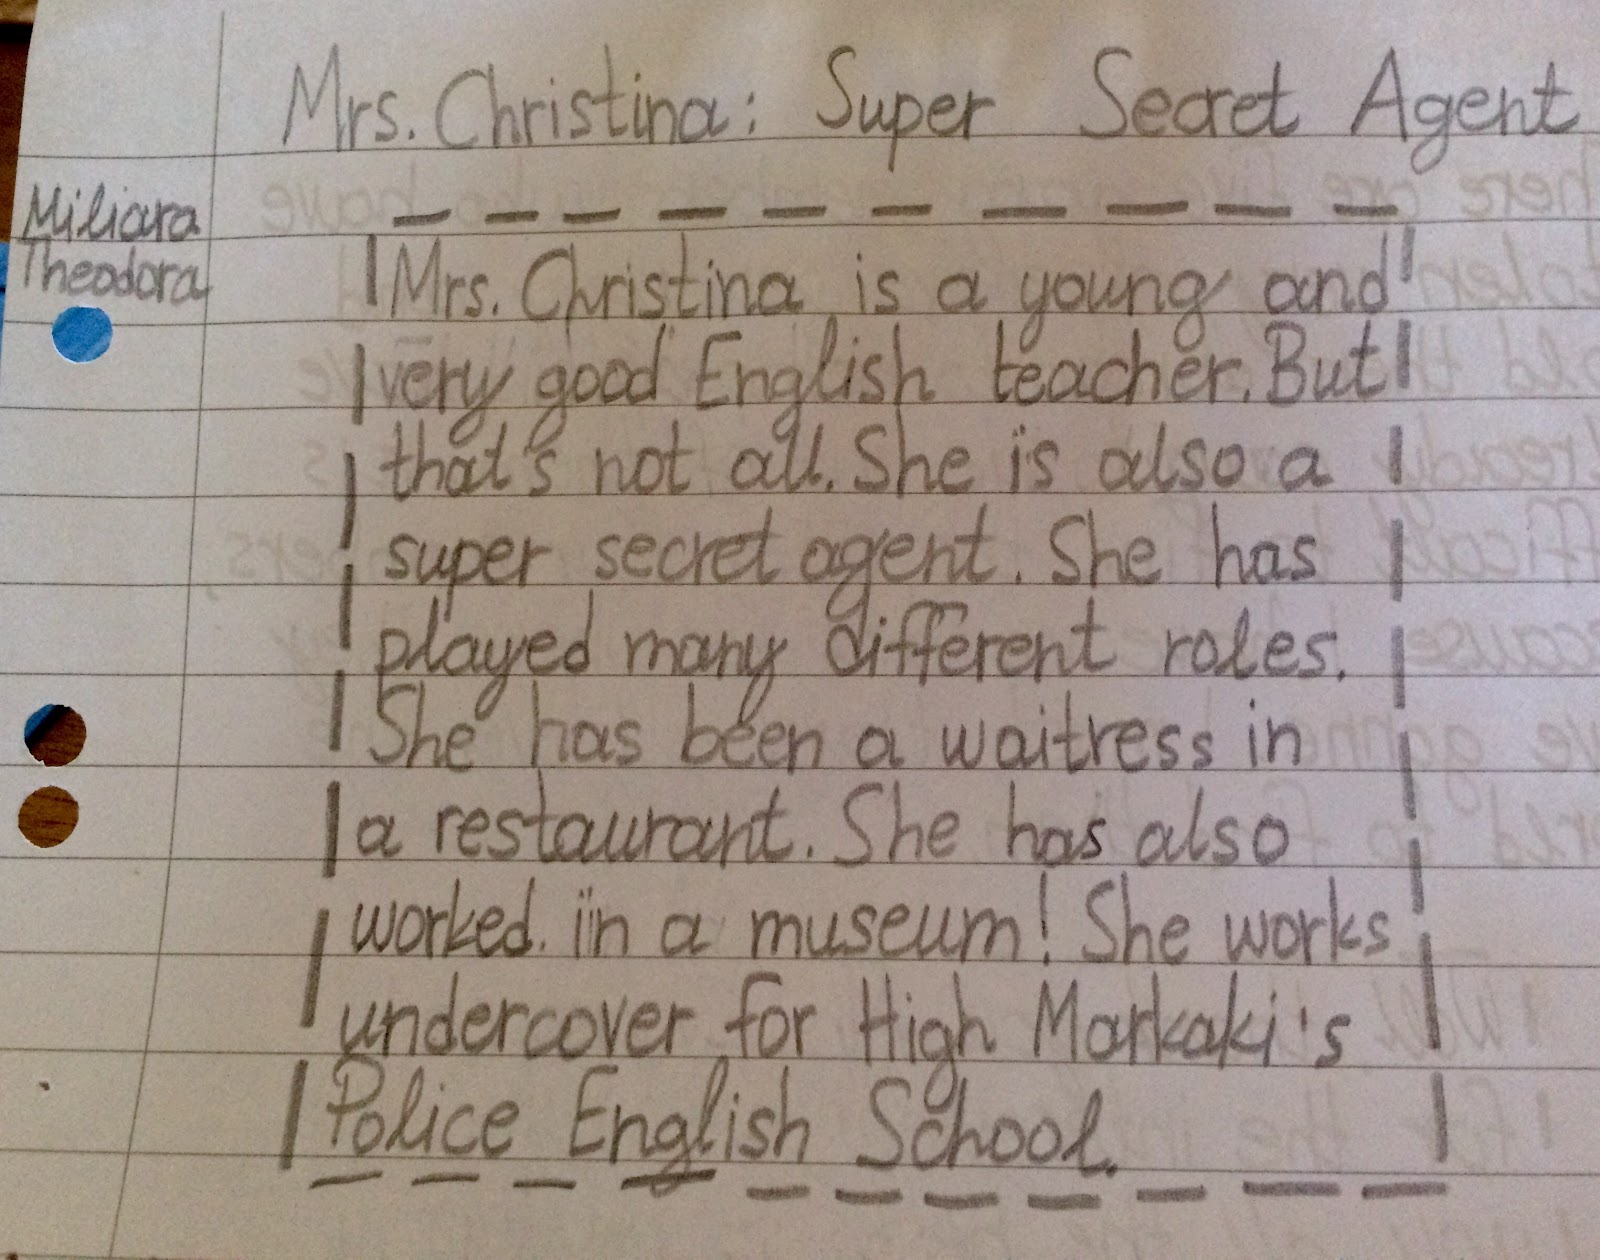 Mrs. Christina: Super Secret Agent
Miliara
Theodora
Mrs. Christina is a young and
very good English teacher. But
that's not all. She is also a
super secret agent. She has
played many different roles.
She has been a waitress in
a restaurant. She has also
worked. in a museum! She works
undercover for High Markaki's
Police English School.